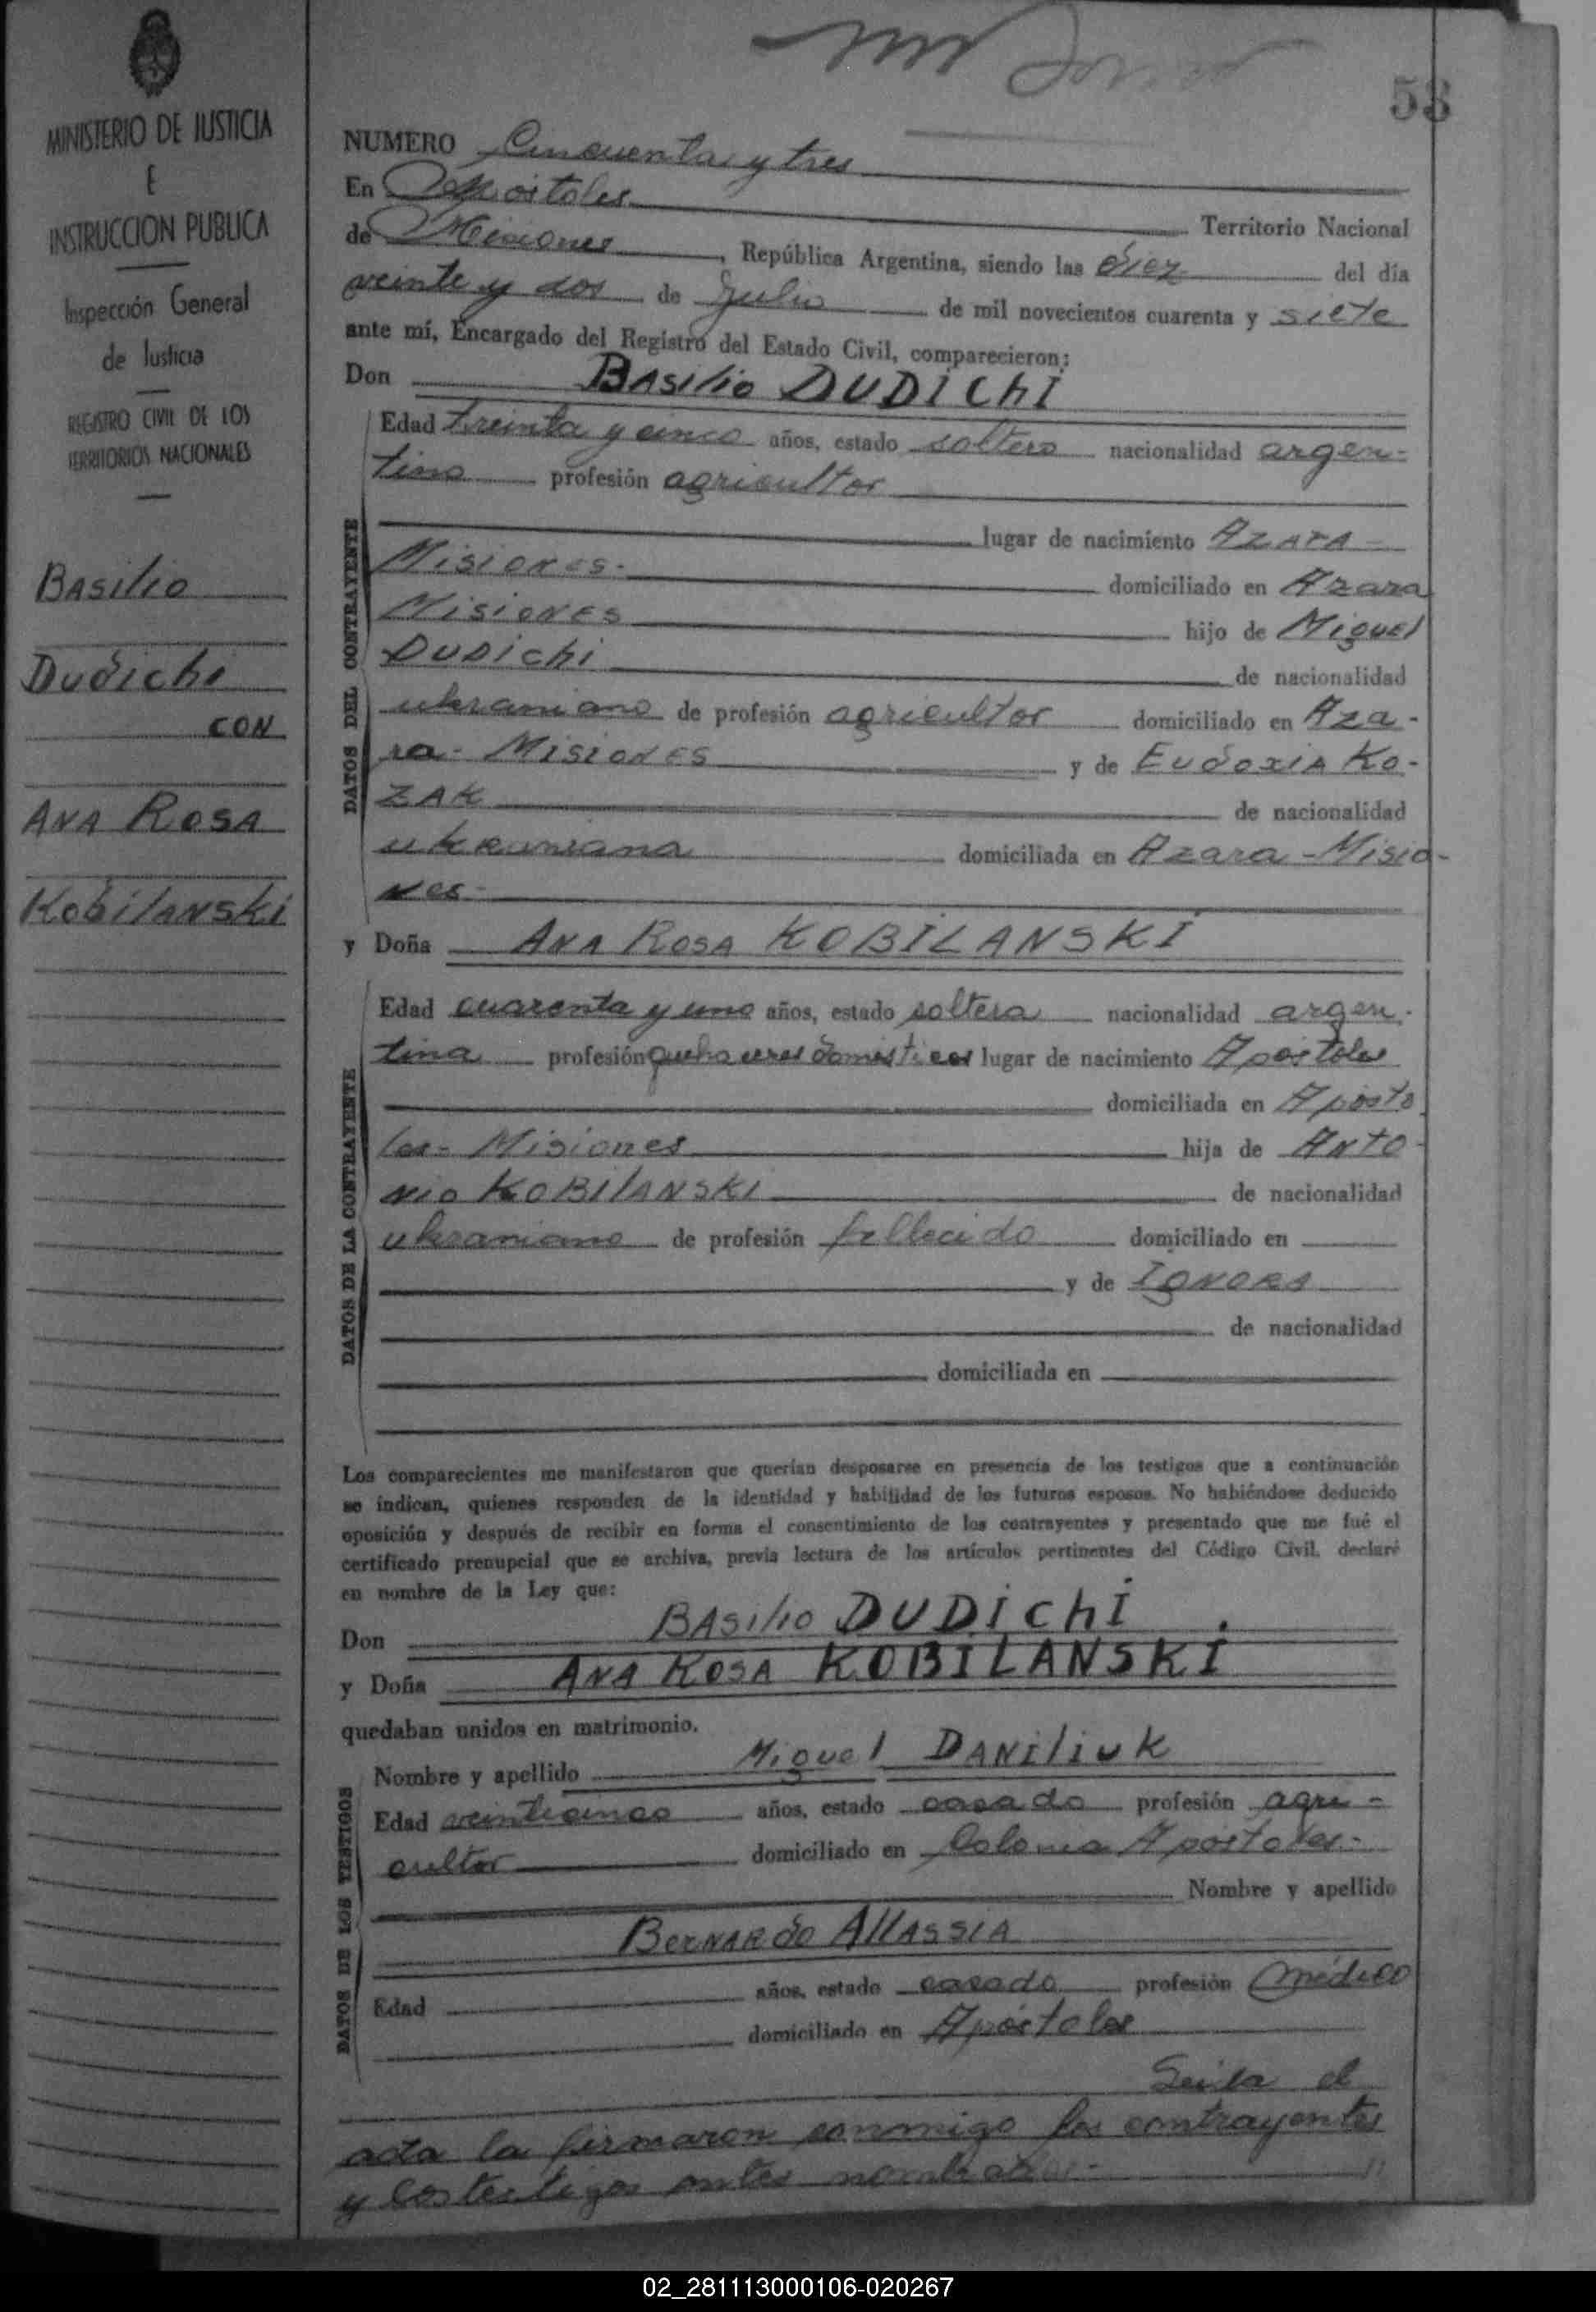 53
MINISTERIO DE JUSTICIA
E
INSTRUCCION PUBLICA
Inspección General
de Justicia
REGISTRO CIVIL DE LOS
TERRITORIOS NACIONALES
Basilio
Dudichi
CON
Ana Rosa
Kobilanski
NUMERO Cincuenta y tres
En Apóstoles Territorio Nacional
de Misiones, República Argentina, siendo las diez del día
veinte y dos de Julio de mil novecientos cuarenta y siete
ante mí, Encargado del Registro del Estado Civil, comparecieron:
Don Basilio DUDICHI
DATOS DEL CONTRAYENTE
Edad treinta y cinco años, estado soltero nacionalidad argen-
tino profesión agricultor
lugar de nacimiento Azara
Misiones.- domiciliado en Azara
Misiones hijo de Miguel
Dudichi de nacionalidad
ukraniano de profesión agricultor domiciliado en Aza-
ra- Misiones y de Eudoxia Ko-
zak de nacionalidad
ukraniana domiciliada en Azara - Misio-
nes-
y Doña Ana Rosa KOBILANSKI
DATOS DE LA CONTRAYENTE
Edad cuarenta y uno años, estado soltera nacionalidad argen-
tina profesión quehaceres domésticos lugar de nacimiento Apóstoles
domiciliada en Apósto
les- Misiones hija de Anto-
nio KOBILANSKI de nacionalidad
ukraniano de profesión fallecido domiciliado en
y de Ignora
de nacionalidad
domiciliada en
Los comparecientes me manifestaron que querían desposarse en presencia de los testigos que a continuación
se indican, quienes responden de la identidad y habilidad de los futuros esposos. No habiéndose deducido
oposición y después de recibir en forma el consentimiento de los contrayentes y presentado que me fué el
certificado prenupcial que se archiva, previa lectura de los artículos pertinentes del Código Civil, declaré
en nombre de la Ley que:
Don Basilio DUDICHI
y Doña Ana Rosa KOBILANSKI
quedaban unidos en matrimonio.
DATOS DE LOS TESTIGOS
Nombre y apellido Miguel DANILIUK
Edad veinticinco años, estado casado profesión agri-
cultor domiciliado en Colonia Apóstoles.-
Nombre y apellido
Bernardo Allassia
Edad años, estado casado profesión médico
domiciliado en Apóstoles
Leída el
acta la firmaron conmigo los contrayentes
y los testigos antes nombrados.-
02_281113000106-020267